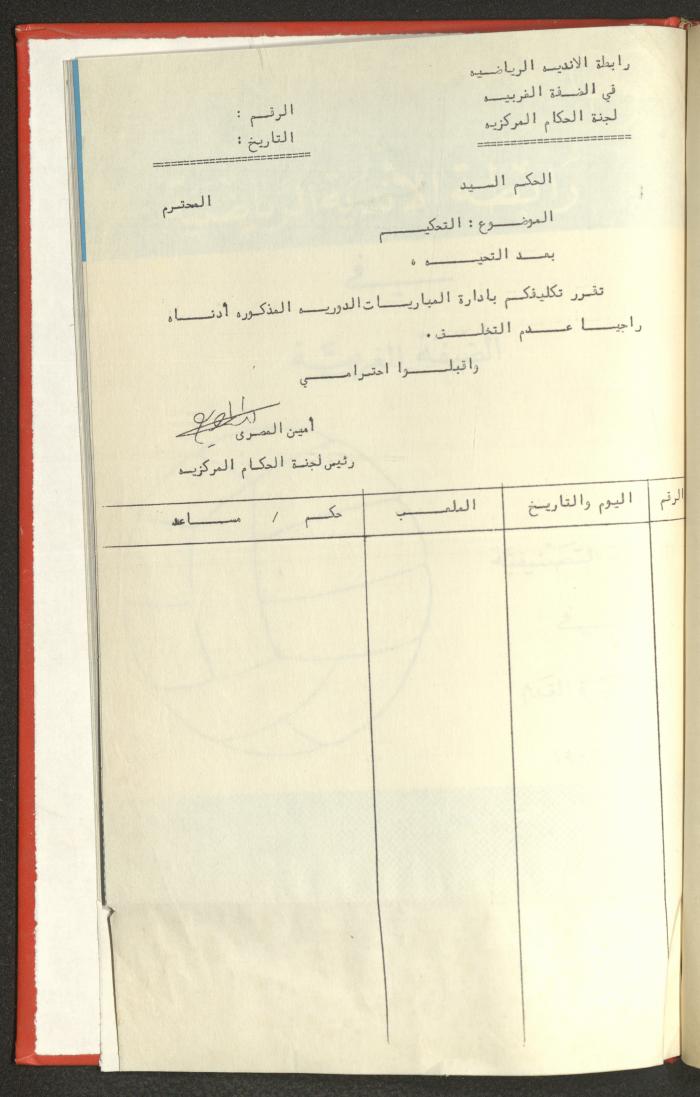 رابطة الانديه الرياضيه
في الضفة الغربيه
لجنة الحكام المركزيه
الرقم :
التاريخ :
الحكم السيد المحترم
الموضوع : التحكيم
بعد التحيه ،
تقرر تكليفكم بادارة المباريات الدوريه المذكوره أدناه
راجيا عدم التخلف .
واقبلوا احترامي
أمين المصرى
رئيس لجنة الحكام المركزيه
الرقم اليوم والتاريخ الملعب حكم / مساعد